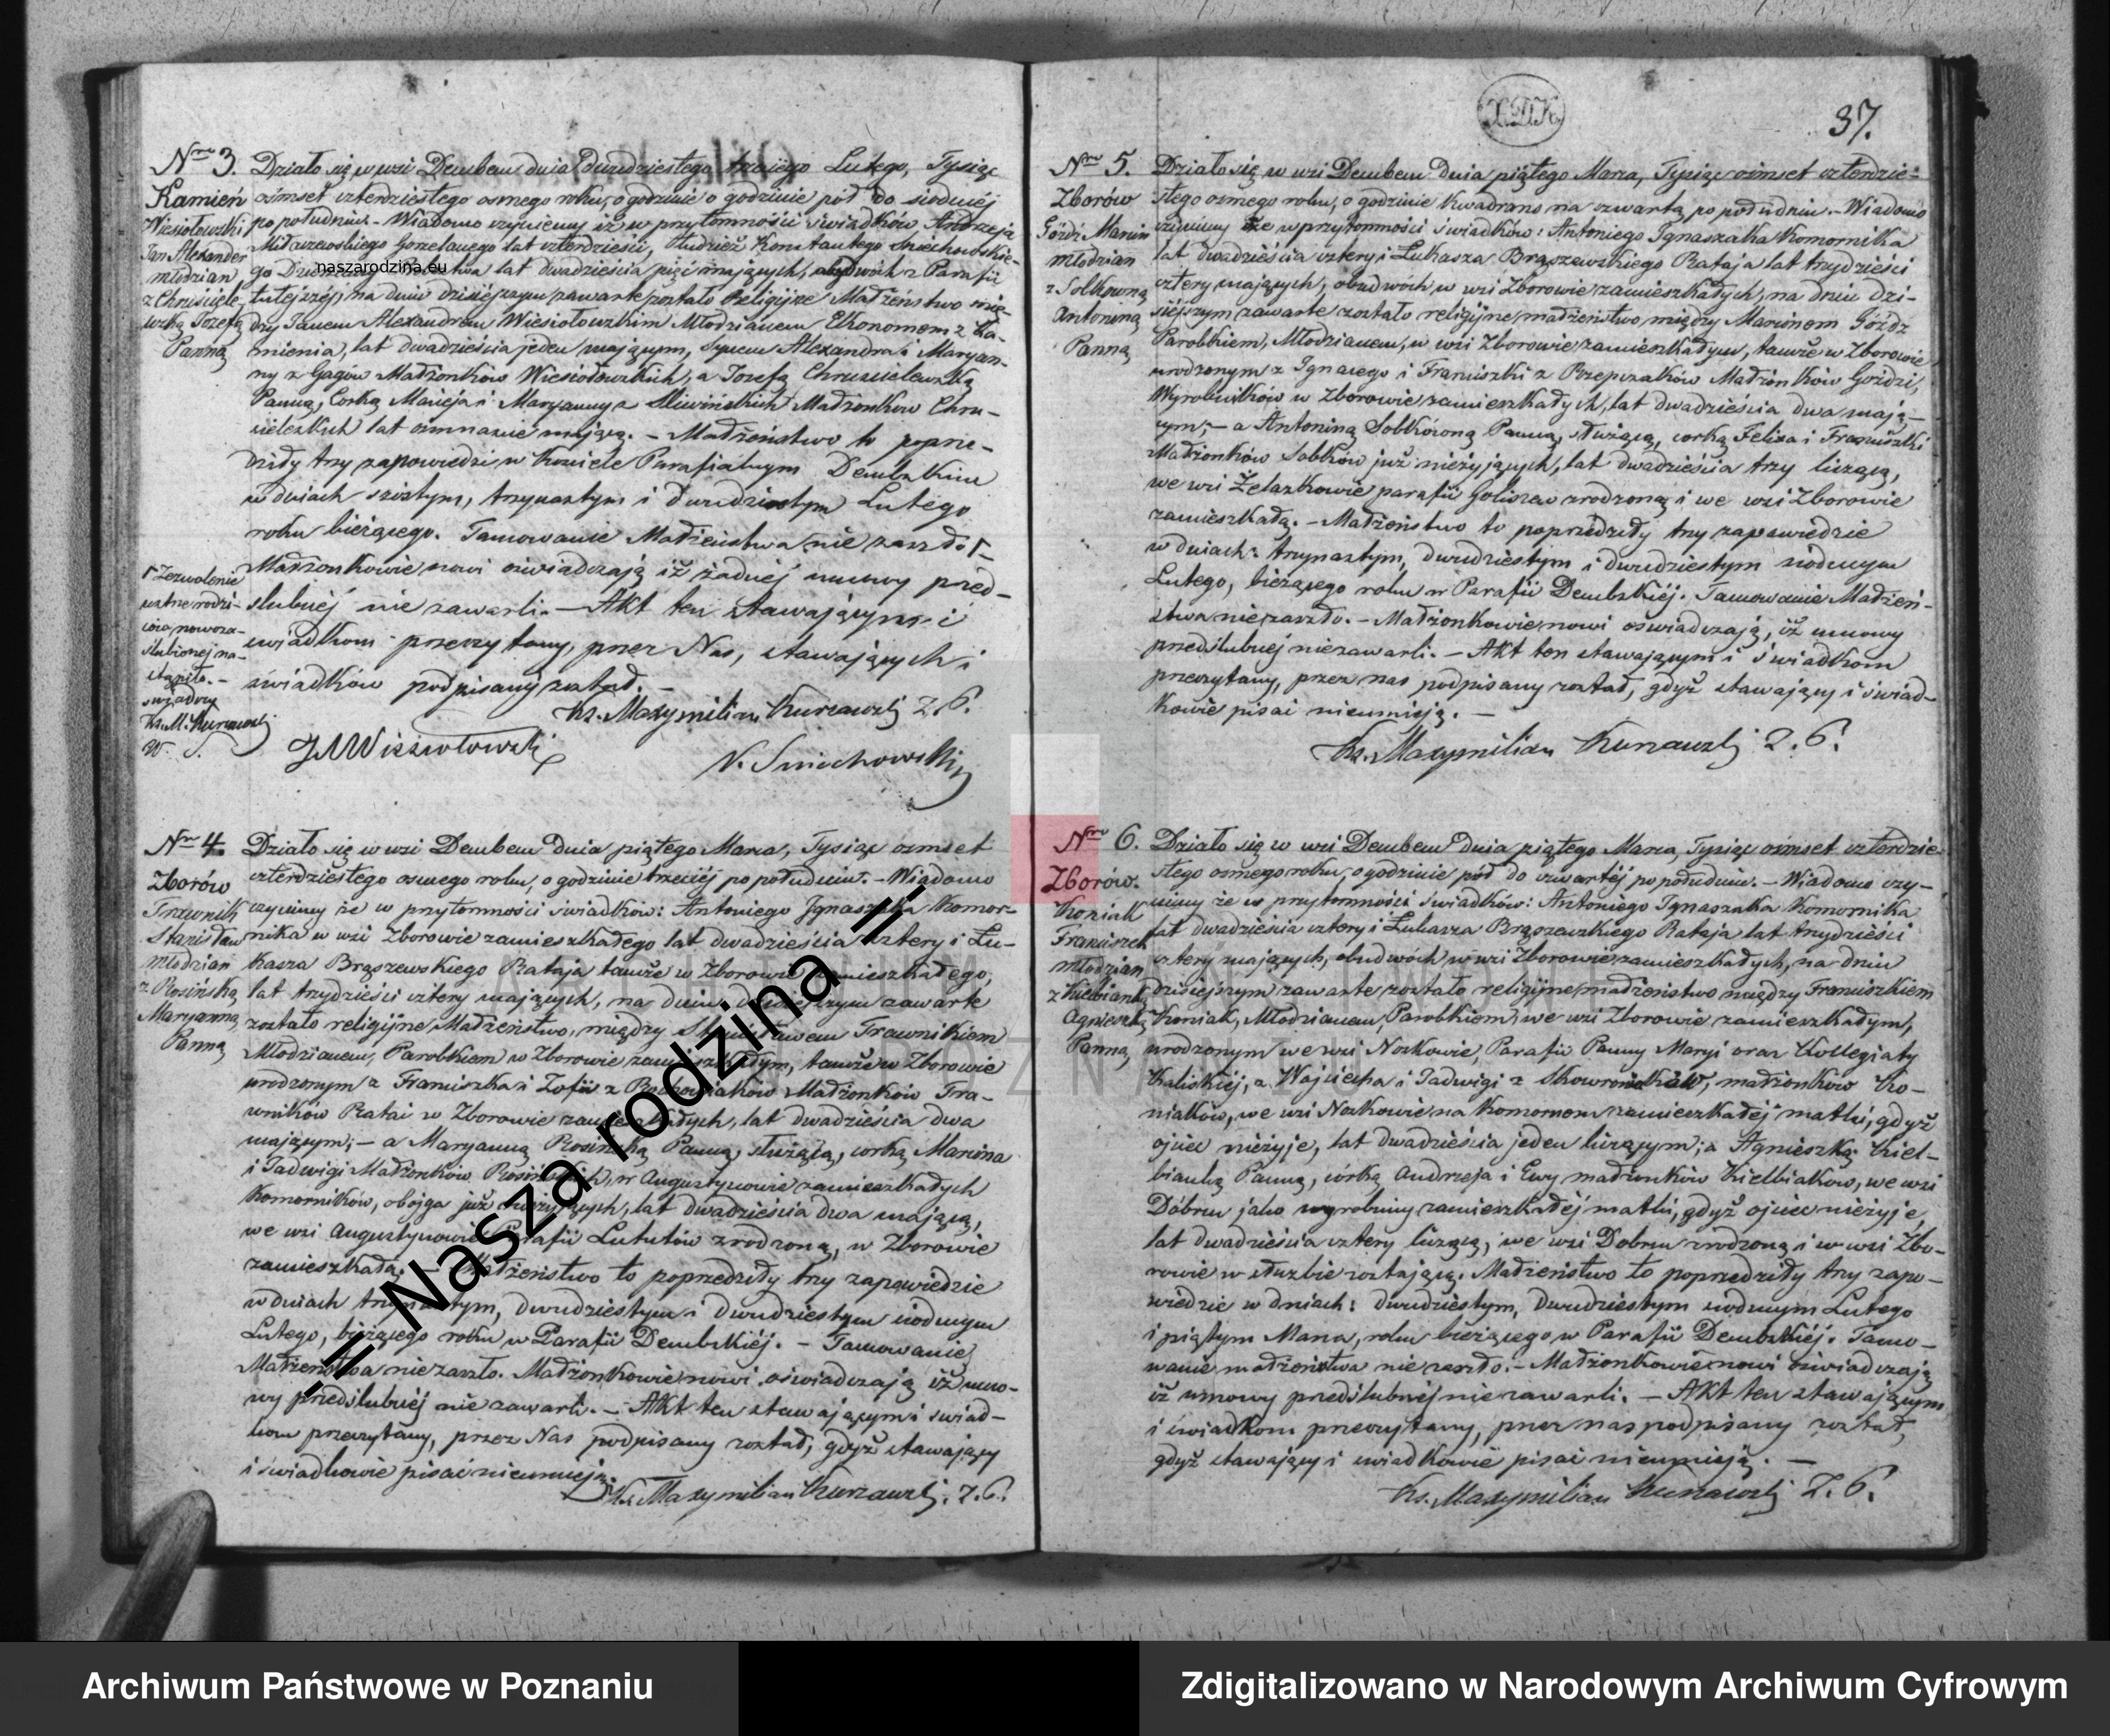 37.
Nro 3.
Kamień
Wiesiołowski
Jan Alexander
młodzian
z Chruściele-
wską Jozefą
Panną
Działo się w wsi Dembem dnia dwudziestego trzeciego Lutego, Tysiąc
ośmset czterdziestego osmego roku, o godzinie o godzinie pół do siodméj
po południu. - Wiadomo czyniemy iż w przytomności świadków Andrzeja
Gorzelanego lat czterdzieści, tudzież Konstantego Sniechowskie-
go lat dwadzieścia pięć mających, obydwóch z Parafii
tutejszéj, na dniu dzisiejszym zawarte zostało Religijne Małżeństwo mię-
dzy Janem Alexandrem Wiesiołowskim Młodzianem Ekonomem z Ka-
mienia, lat dwadzieścia jeden mającym, Synem Alexandra i Maryan-
ny z Gagów Małżonków Wiesiołowskich, a Jozefą Chruscielewską
Panną, Corką Macieja i Maryanny z Sliwińskich Małżonkow Chru-
lat ośmnaście mającą. - Małżeństwo to poprze-
dziły trzy zapowiedzi w Kościele Parafialnym Dembskim
w dniach szóstym, trzynastym i dwudziestym Lutego
roku bieżącego. Tamowanie Małżeństwa nie zaszło
Małżonkowie nowi oświadczają iż żadnéj umowy przed-
ślubnéj nie zawarli. - Akt ten stawającym i
świadkom przeczytany, przez Nas, stawających i
świadków podpisany został. -
Zezwolenie
ustne rodzi-
ców nowoza-
ślubionej na-
stąpiło. -
Ks. Maxymilian Kurzawski
N. Sniechowski
Nro 4.
Zborów
Trawnik
Stanisław
młodzian
z Rosińską
Maryanną
Panną
Działo się w wsi Dembem dnia piątego Marca, Tysiąc ośmset
czterdziestego osmego roku, o godzinie trzeciéj po południu. - Wiadomo
czyniemy że w przytomności świadków: Antoniego Ignaszaka Komor-
nika w wsi Zborowie zamieszkałego lat dwadzieścia cztery i Łu-
kasza Brąszewskiego Rataja tamże w Zborowie zamieszkałego,
lat trzydzieści cztery mających, na dniu dzisiejszym zawarte
zostało religijne Małżeństwo, między Stanisławem Trawnikiem
Młodzianem, Parobkiem w Zborowie zamieszkałym, tamże w Zborowie
urodzonym z Franciszka i Zofii z Małżonków Tra-
wników Ratai w Zborowie zamieszkałych, lat dwadzieścia dwa
mającym; - a Maryanną Rosińską Panną, służącą, corką Marcina
i Jadwigi Małżonków Rosińskich, w Augustynowie zamieszkałych
Komorników, obojga już nieżyjących, lat dwadzieścia dwa mającą,
we wsi Augustynowie Parafii Lututów zrodzoną, w Zborowie
zamieszkałą. - Małżeństwo to poprzedziły trzy zapowiedzie
w dniach trzynastym, dwudziestym i dwudziestym siodmym
Lutego, bieżącego roku w Parafii Dembskiéj. - Tamowanie
Małżeństwa nie zaszło. Małżonkowie nowi oświadczają iż umo-
wy przedślubnéj nie zawarli. - Akt ten stawającym i świad-
kom przeczytany, przez Nas podpisany został, gdyż stawający
i świadkowie pisać nieumieją.
Ks. Maxymilian Kurzawski
Nro 5.
Zborów
Góźdź Marcin
młodzian
z Sobkowną
Antoniną
Panną
Działo się w wsi Dembem Dnia piątego Marca, Tysiąc ośmset czterdzie-
stego osmego roku, o godzinie kwadrans na czwartą po południu. - Wiadomo
czyniemy że w przytomności świadków: Antoniego Ignaszaka Komornika
lat dwadzieścia cztery i Łukasza Brąszewskiego Rataja lat trzydzieści
cztery mających, obudwóch w wsi Zborowie zamieszkałych, na dniu dzi-
siéjszym zawarte zostało religijne małżeństwo między Marcinem Góźdz
Parobkiem, Młodzianem, w wsi Zborowie zamieszkałym, tamże w Zborowie
urodzonym z Ignacego i Franciszki z Przepczaków Małżonków Goździ,
Wyrobników w Zborowie zamieszkałych, lat dwadzieścia dwa mają-
cym; - a Antoniną Sobkówną Panną, służącą, corką Felixa i Franciszki
Małżonków Sobków już nieżyjących, lat dwadzieścia trzy liczącą,
we wsi Żelazkowie parafii Goliszew zrodzoną i we wsi Zborowie
zamieszkałą. - Małżeństwo to poprzedziły trzy zapowiedzie
w dniach: trzynastym, dwudziestym i dwudziestym siodmym
Lutego, bieżącego roku w Parafii Dembskiéj. Tamowanie Małżeń-
stwa nie zaszło. - Małżonkowie nowi oświadczają, iż umowy
przedślubnéj niezawarli. - Akt ten stawającym i świadkom
przeczytany, przez nas podpisany został, gdyż stawający i świad-
kowie pisać nieumieją. -
Ks. Maxymilian Kurzawski
Nro 6.
Zborów.
Koniak
Franciszek
młodzian
z Kiełbianką
Agnieszką
Panną
Działo się w wsi Dembem dnia piątego Marca, Tysiąc ośmset czterdzie-
stego osmego roku, o godzinie pół do czwartéj po południu. - Wiadomo czy-
niemy że w przytomności świadków: Antoniego Ignaszaka Komornika
lat dwadzieścia cztery i Łukasza Brąszewskiego Rataja lat trzydzieści
cztery mających, obudwóch w wsi Zborowie zamieszkałych, na dniu
dzisiejszym zawarte zostało religijne małżeństwo między Franciszkiem
Koniak, Młodzianem, Parobkiem, we wsi Zborowie zamieszkałym,
urodzonym we wsi Noskowie, Parafii Panny Maryi oraz Kollegiaty
Kaliskiéj, z Wojciecha i Jadwigi z Skowrońskich, małżonków Ko-
niaków, we wsi Noskowie na komornem zamieszkałéj matki, gdyż
ojciec nieżyje, lat dwadzieścia jeden liczącym; a Agnieszką Kieł-
bianką Panną, córką Andrzeja i Ewy małżonków Kiełbiaków, we wsi
Dóbrcu jako wyrobnicy zamieszkałéj matki, gdyż ojciec nieżyje,
lat dwadzieścia cztery liczącą, we wsi Dobrcu zrodzoną i w wsi Zbo-
rowie w służbie zostającą. Małżeństwo to poprzedziły trzy zapo-
wiedzie w dniach: dwudziestym, dwudziestym siodmym Lutego
i piątym Marca, roku bieżącego w Parafii Dembskiéj. Tamo-
wanie małżeństwa nie zaszło. - Małżonkowie nowi oświadczają
iż umowy przedślubnéj nie zawarli. - Akt ten stawającym
i świadkom przeczytany, przez nas podpisany został,
gdyż stawający i świadkowie pisać nieumieją. -
Ks. Maxymilian Kurzawski
naszarodzina.eu
-= Nasza rodzina =-
Archiwum Państwowe w Poznaniu
Zdigitalizowano w Narodowym Archiwum Cyfrowym